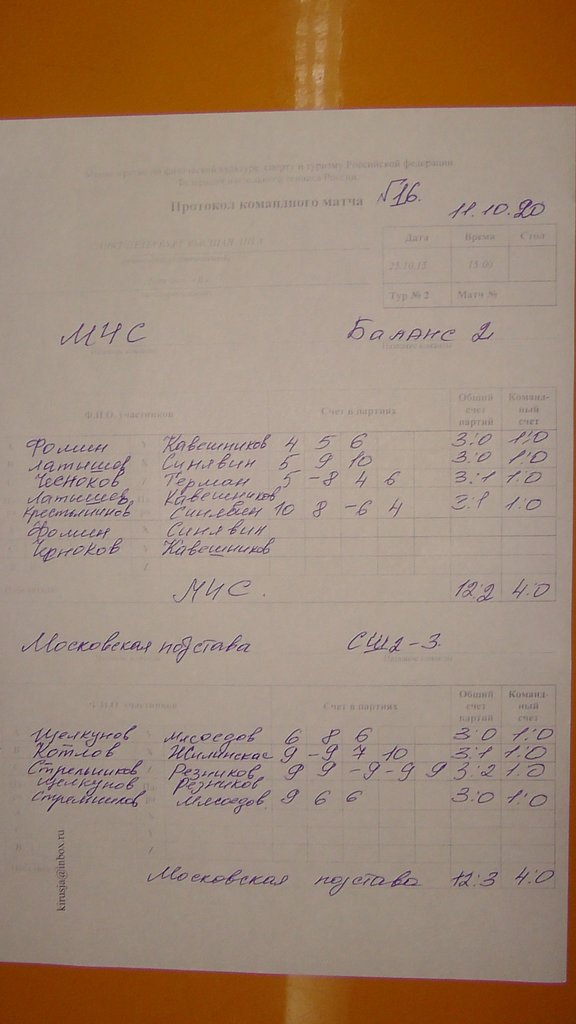 Министерство по физической культуре, спорту и туризму Российской федерации
Федерация настольного тенниса России
Протокол командного матча №16.
11.10.20
САНКТ-ПЕТЕРБУРГ ВЫСШАЯ ЛИГА
Дата Время Стол
25.10.15 15 00
Тур № 2 Матч №
МЧС Баланс 2
Название команды
Ф.И.О. участников Счет в партиях Общий счет партий Команд-ный счет
Фомин Кавешников 4 5 6 3:0 1:0
Латышов Синявин 5 9 10 3:0 1:0
Чесноков Герман 5 -8 4 6 3:1 1:0
Латышов Кавешников
Крестьянинов Синявин 10 8 -6 4 3:1 1:0
Фомин Синявин
Чесноков Кавешников
МЧС. 12:2 4:0
Московская подстава СШ2-3.
Название команды
Ф.И.О. участников Счет в партиях Общий счет партий Команд-ный счет
Щелкунов Мясоедов 6 8 6 3:0 1:0
Котлов Жилинская 9 -9 7 10 3:1 1:0
Стрельников Резников 9 9 -9 -9 9 3:2 1:0
Щелкунов Резников
Стрельников Мясоедов 9 6 6 3:0 1:0
Московская подстава 12:3 4:0
kirusja@inbox.ru